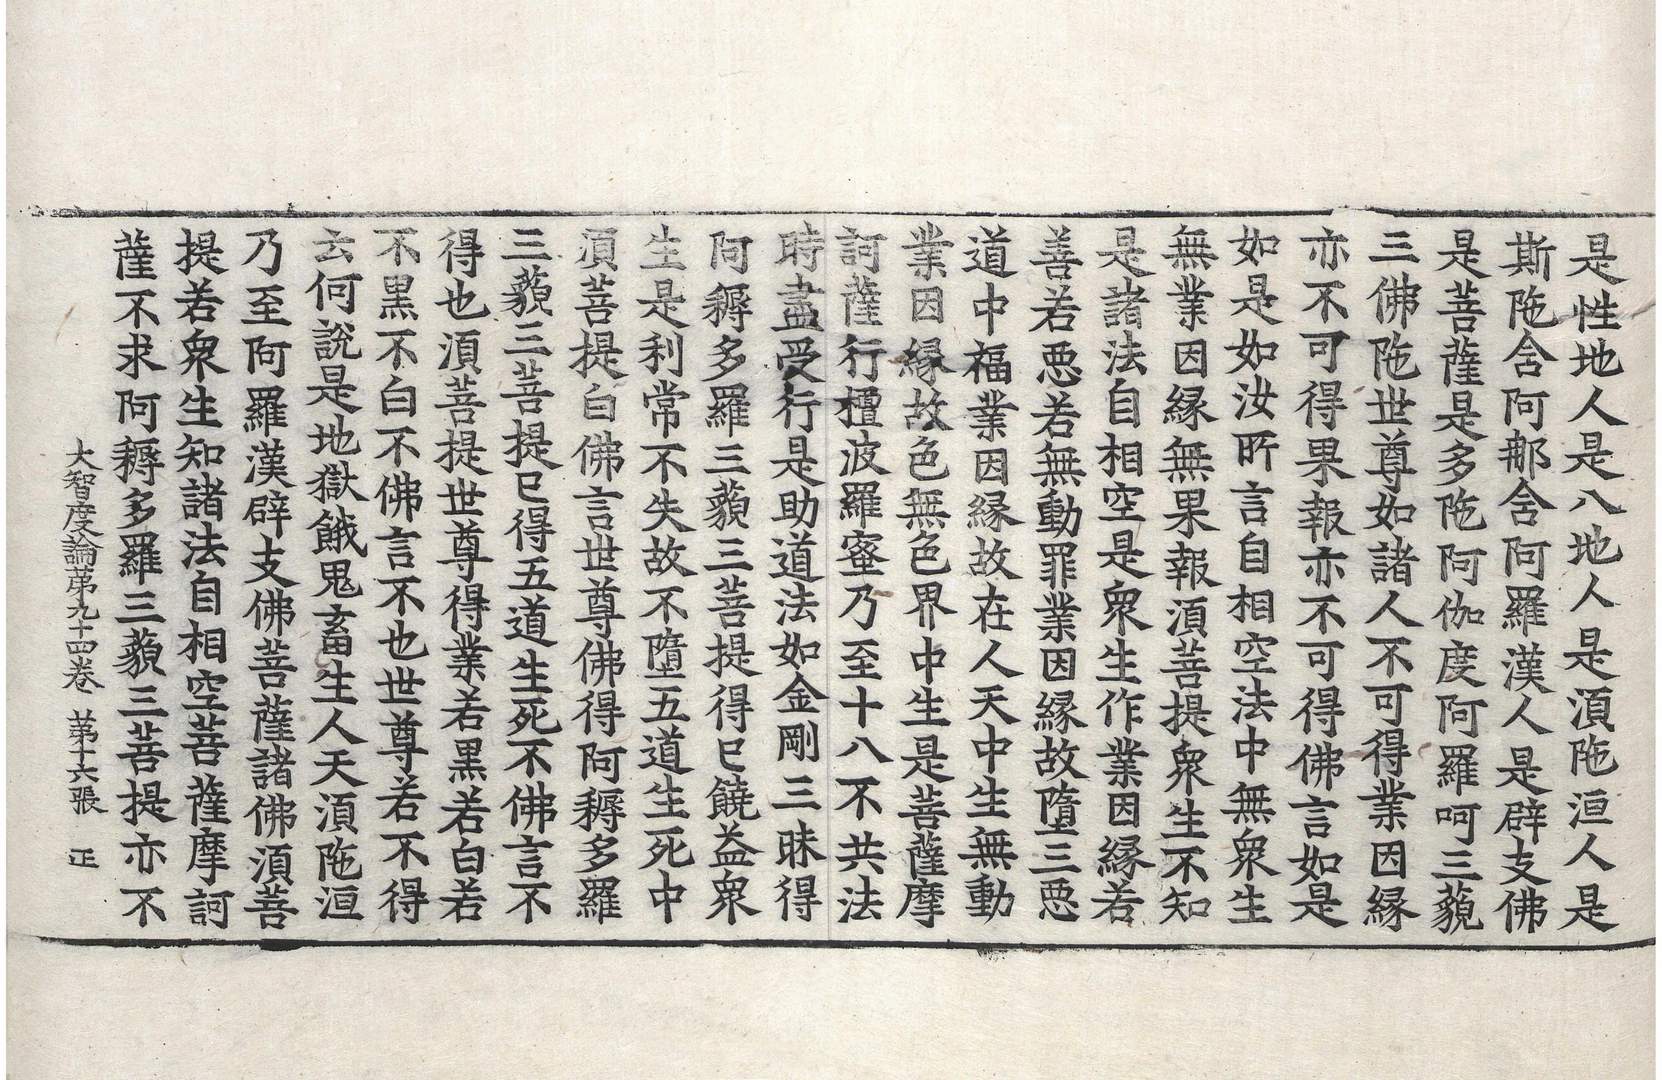 是性地人是八地人是湏陁洹人是
斯陁含阿那含阿羅漢人是辟支佛
是菩薩是多陁阿伽度阿羅呵三藐
三佛陁世尊如諸人不可得業因緣
亦不可得果報亦不可得佛言如是
如是如汝所言自相空法中無衆生
無業因緣無果報湏菩提衆生不知
是諸法自相空是衆生作業因緣若
善若惡若無動罪業因緣故墮三惡
道中福業因緣故在人天中生無動
業因緣故色無色界中生是菩薩摩
訶薩行檀波羅蜜乃至十八不共法
時盡受行是助道法如金剛三昧得
阿耨多羅三藐三菩提得已饒益衆
生是利常不失故不墮五道生死中
湏菩提白佛言世尊佛得阿耨多羅
三藐三菩提已得五道生死不佛言不
得也湏菩提世尊得業若黑若白若
不黑不白不佛言不也世尊若不得
云何說是地獄餓鬼畜生人天湏陁洹
乃至阿羅漢辟支佛菩薩諸佛湏菩
提若衆生知諸法自相空菩薩摩訶
薩不求阿耨多羅三藐三菩提亦不
大智度論第九十四卷 第十六張 正